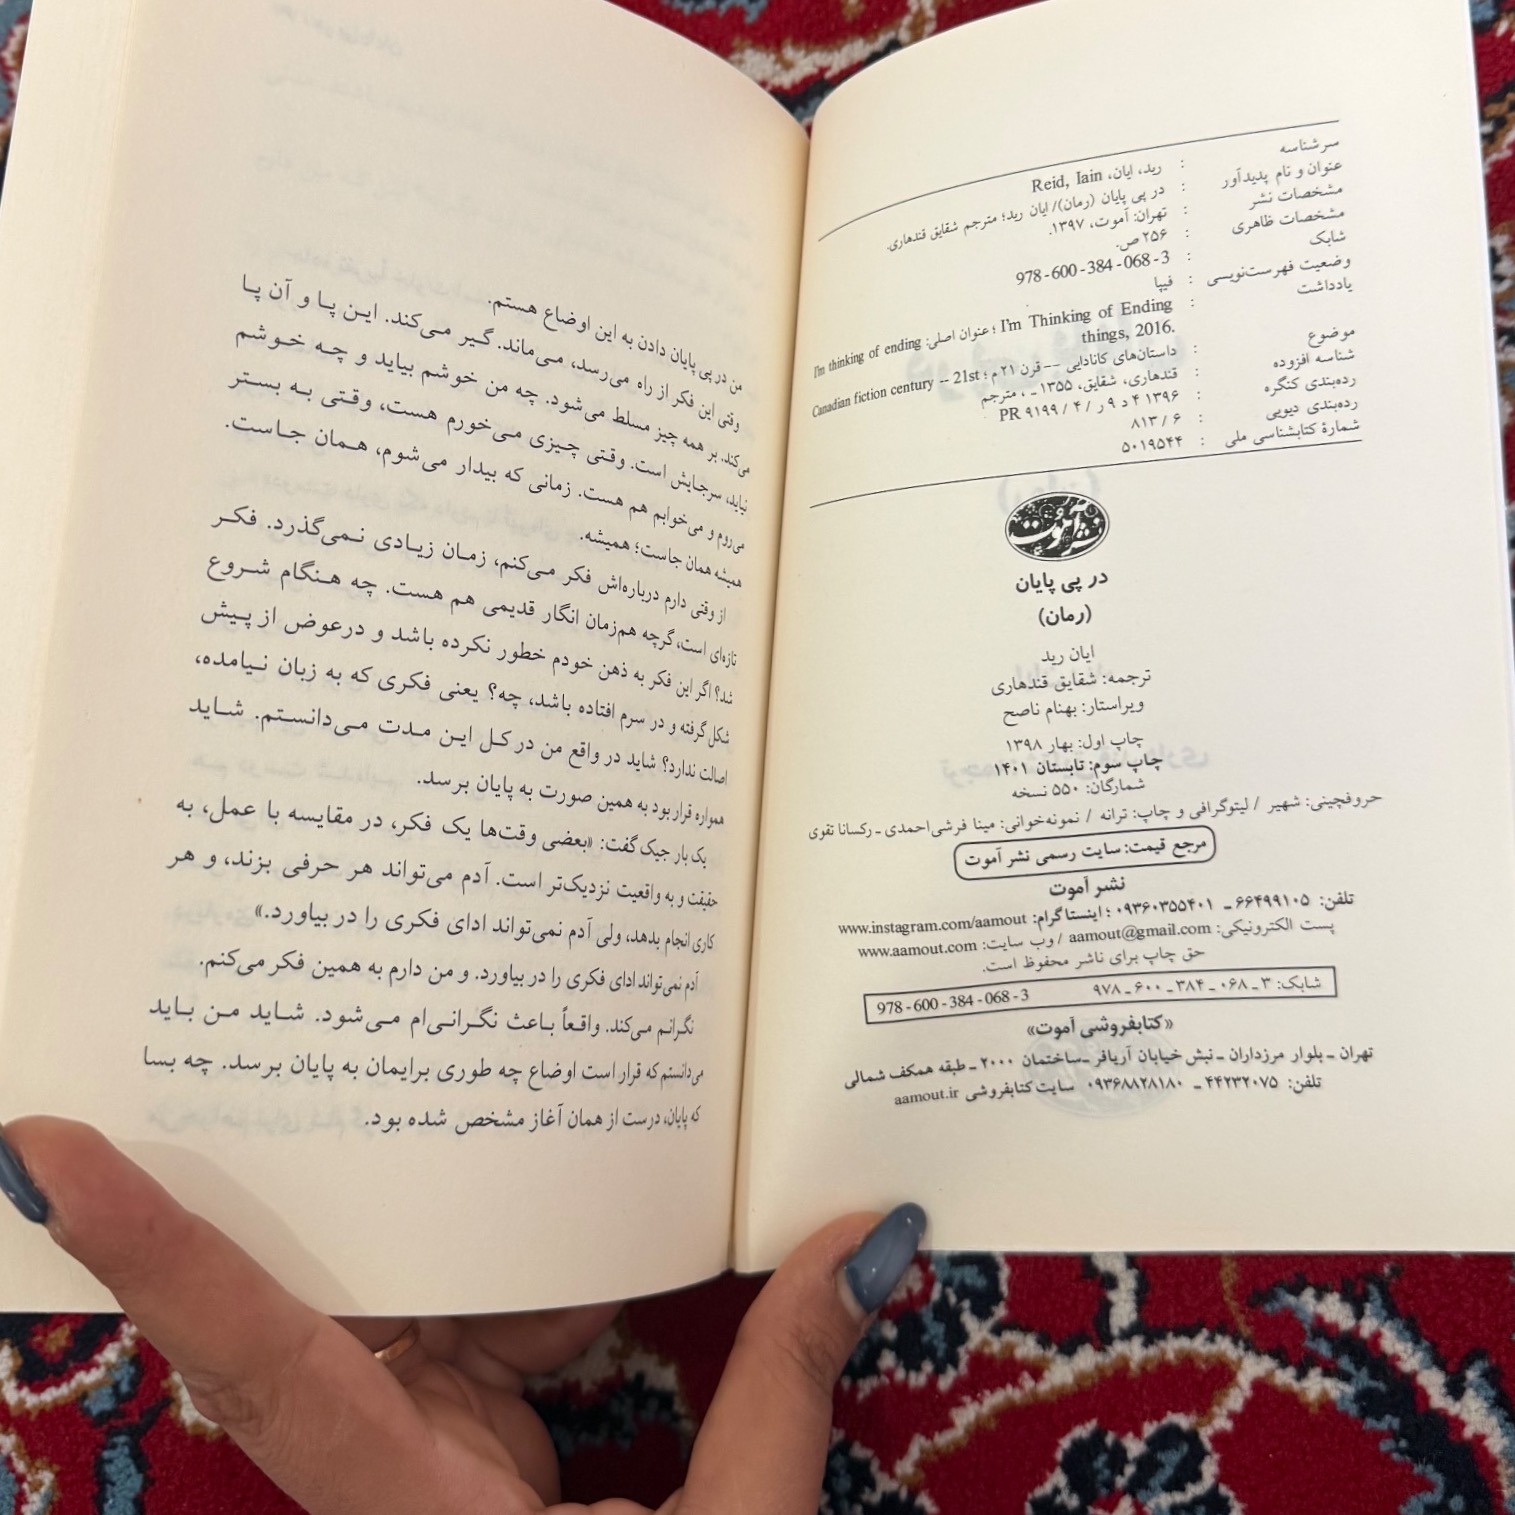 سرشناسه : رید، ایان، Reid, Iain
عنوان و نام پدیدآور : در پی پایان (رمان)/ ایان رید؛ مترجم شقایق قندهاری.
مشخصات نشر : تهران: آموت، ۱۳۹۷.
مشخصات ظاهری : ۲۵۶ ص.
شابک : 978-600-384-068-3
وضعیت فهرست‌نویسی : فیپا
یادداشت : I'm thinking of ending عنوان اصلی: ؛ I'm Thinking of Ending
things, 2016.
موضوع : داستان‌های کانادایی -- قرن ۲۱ م ؛ Canadian fiction century -- 21st
شناسه افزوده : قندهاری، شقایق، ۱۳۵۵ ـ ، مترجم
رده‌بندی کنگره : ۱۳۹۶ ۴ د ۹ ر / ۴ / PR ۹۱۹۹
رده‌بندی دیویی : ۸۱۳/۶
شمارهٔ کتابشناسی ملی : ۵۰۱۹۵۴۴
نشر آموت
در پی پایان
(رمان)
ایان رید
ترجمه: شقایق قندهاری
ویراستار: بهنام ناصح
چاپ اول: بهار ۱۳۹۸
چاپ سوم: تابستان ۱۴۰۱
شمارگان: ۵۵۰ نسخه
حروفچینی: شهیر / لیتوگرافی و چاپ: ترانه / نمونه‌خوانی: مینا فرشی‌احمدی ـ رکسانا تقوی
مرجع قیمت: سایت رسمی نشر آموت
نشر آموت
تلفن: ۶۶۴۹۹۱۰۵ ـ ۰۹۳۶۰۳۵۵۴۰۱ ؛ اینستاگرام: www.instagram.com/aamout
پست الکترونیکی: aamout@gmail.com / وب سایت: www.aamout.com
حق چاپ برای ناشر محفوظ است.
شابک: ۳ ـ ۰۶۸ ـ ۳۸۴ ـ ۶۰۰ ـ ۹۷۸ 978-600-384-068-3
«کتابفروشی آموت»
تهران ـ بلوار مرزداران ـ نبش خیابان آریافر ـ ساختمان ۲۰۰۰ ـ طبقه همکف شمالی
تلفن: ۴۴۲۳۲۰۷۵ ـ ۰۹۳۶۸۸۲۸۱۸۰ سایت کتابفروشی aamout.ir
من در پی پایان دادن به این اوضاع هستم.
وقتی این فکر از راه می‌رسد، می‌ماند. گیر می‌کند. این پا و آن پا
می‌کند. بر همه چیز مسلط می‌شود. چه من خوشم بیاید و چه خوشم
نیاید، سرجایش است. وقتی چیزی می‌خورم هست، وقتی به بستر
می‌روم و می‌خوابم هم هست. زمانی که بیدار می‌شوم، همان جاست.
همیشه همان جاست؛ همیشه.
از وقتی دارم درباره‌اش فکر می‌کنم، زمان زیادی نمی‌گذرد. فکر
تازه‌ای است، گرچه هم‌زمان انگار قدیمی هم هست. چه هنگام شروع
شد؟ اگر این فکر به ذهن خودم خطور نکرده باشد و درعوض از پیش
شکل گرفته و در سرم افتاده باشد، چه؟ یعنی فکری که به زبان نیامده،
اصالت ندارد؟ شاید در واقع من در کل این مدت می‌دانستم. شاید
همواره قرار بود به همین صورت به پایان برسد.
یک بار جیک گفت: «بعضی وقت‌ها یک فکر، در مقایسه با عمل، به
حقیقت و به واقعیت نزدیک‌تر است. آدم می‌تواند هر حرفی بزند، و هر
کاری انجام بدهد، ولی آدم نمی‌تواند ادای فکری را در بیاورد.»
آدم نمی‌تواند ادای فکری را در بیاورد. و من دارم به همین فکر می‌کنم.
نگرانم می‌کند. واقعاً باعث نگرانی‌ام می‌شود. شاید من باید
می‌دانستم که قرار است اوضاع چه طوری برایمان به پایان برسد. چه بسا
که پایان، درست از همان آغاز مشخص شده بود.